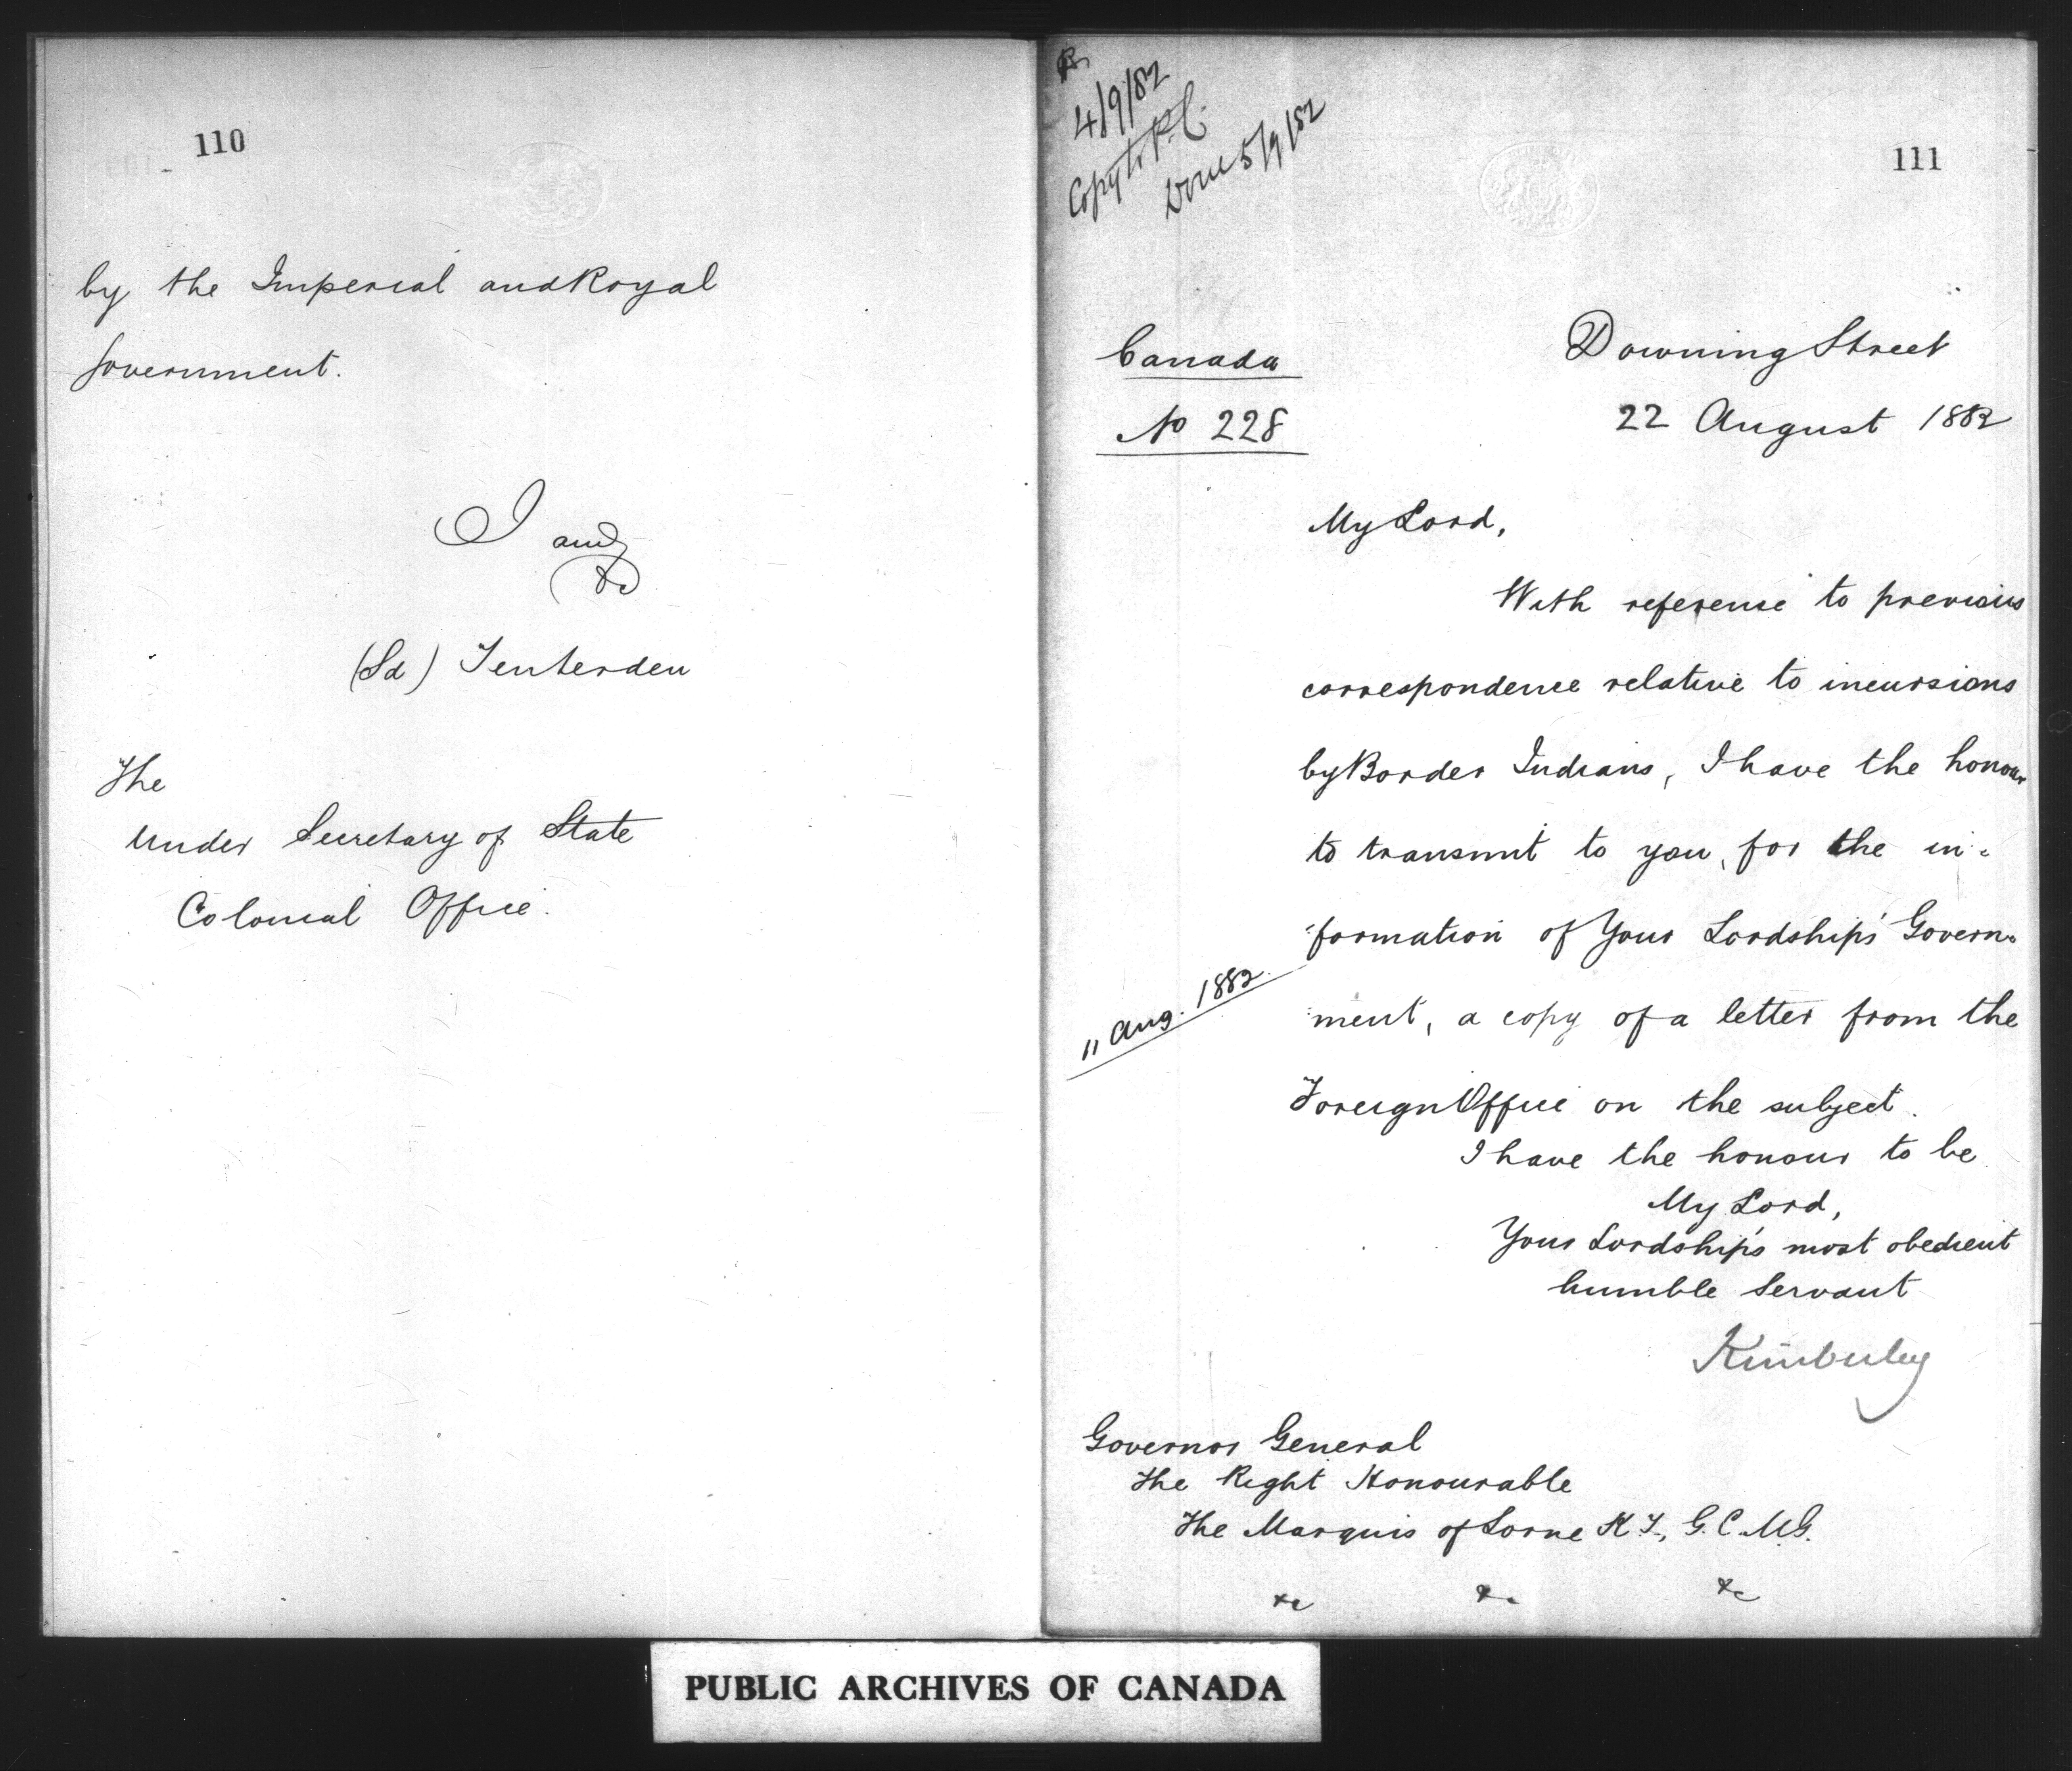 110
by the Imperial and Royal
Government.
I am
&c
(Sd) Tenterden
The
Under Secretary of State
Colonial Office.
4/9/82
Copy to P.C.
Done 5/9/82
111
Canada
No 228
Downing Street
22 August 1882
My Lord,
With reference to previous
correspondence relative to incursions
by Border Indians, I have the honour
to transmit to you, for the in-
formation of Your Lordship's Govern-
11 Aug. 1882.
ment, a copy of a letter from the
Foreign Office on the subject.
I have the honour to be
My Lord,
Your Lordship's most obedient
humble Servant
Kimberley
Governor General
The Right Honourable
The Marquis of Lorne K.T., G.C.M.G.
&c &c &c
PUBLIC ARCHIVES OF CANADA